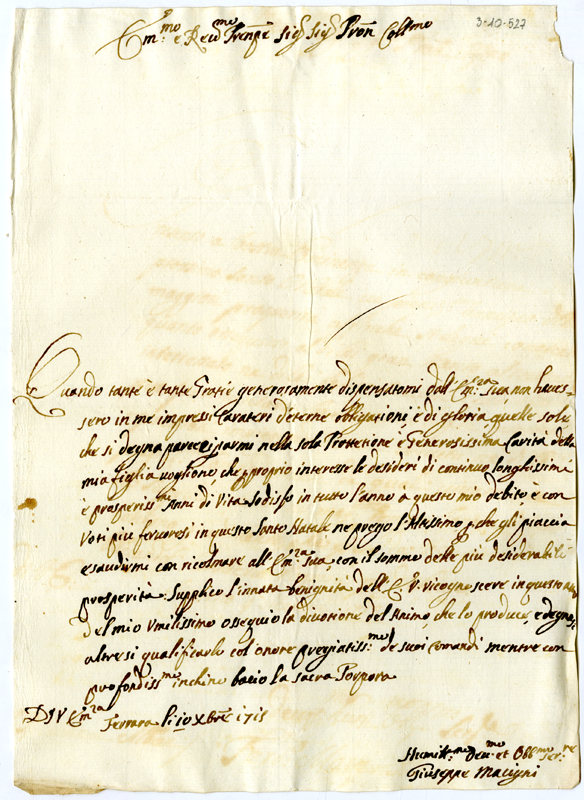 3-10-527
Em:mo e Reu:mo Prenpe Sig.r Sig.r Pron Coll:mo
Quando tante è tante Gratie generosamente dispensatomi dall'Em:za sua non haues-
sero in me impressi Carateri d'eterne obligationi è di gloria, quelle sole
che si degna parteciparmi nella sola Protettione, è Generosissima Carità della
mia figlia uogliono, che proprio interesse le desideri di continuo longhissimi
è prosperiss:mi Anni di Vita. Sodisfo in tutto l'anno à questo mio debito è con
Voti più feruorosi in questo Santo Natale ne prego l'Altissimo, che gli piaccia
esaudirmi con ricolmare all'Em:za sua con il sommo delle più desiderabili
prosperità. Supplico l'innata benignità dell'E. V. ricognoscere in questo atto
del mio Vmilissimo ossequio la diuotione del Animo, che lo produce, e degnasi
altresi qualificarlo col onore pregiatiss:mo de suoi comandi mentre con
profondiss:mo inchino bacio la sacra Porpora
D V Em:za
Ferrara li 10 Xbre 1715
Humil:mo deu:mo et Obb:mo ser:re
Giuseppe Macigni